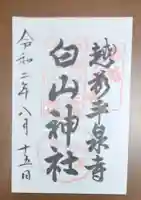 越前平泉寺
白山神社
令和二年八月十五日